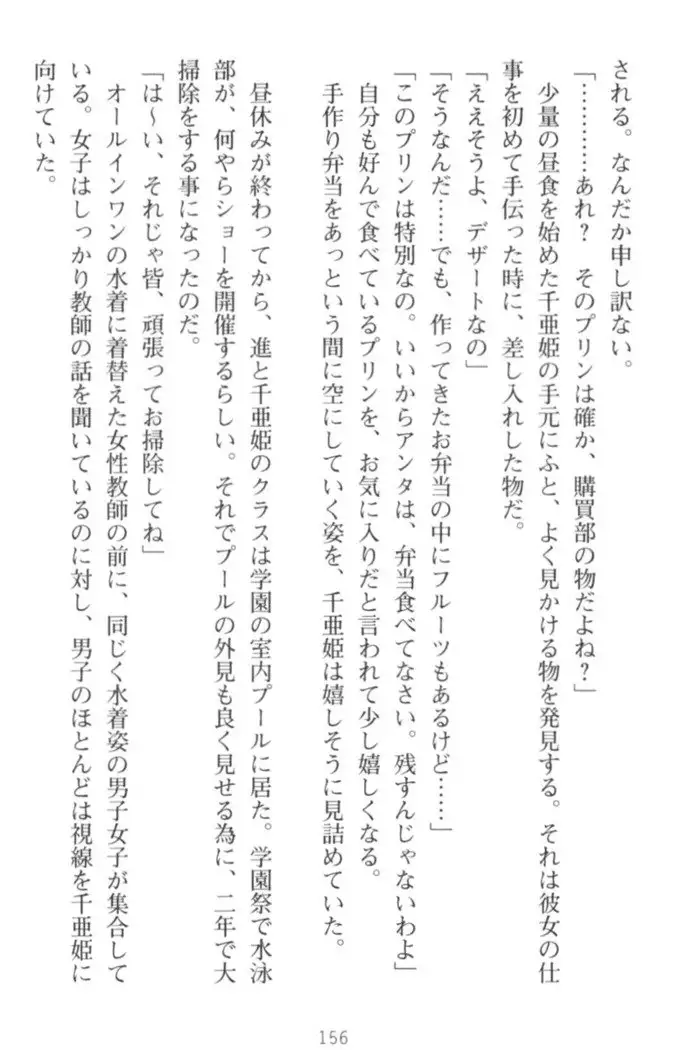 される。なんだか申し訳ない。
「…………あれ？　そのプリンは確か、購買部の物だよね？」
　少量の昼食を始めた千亜姫の手元にふと、よく見かける物を発見する。それは彼女の仕
事を初めて手伝った時に、差し入れした物だ。
「ええそうよ、デザートなの」
「そうなんだ……でも、作ってきたお弁当の中にフルーツもあるけど……」
「このプリンは特別なの。いいからアンタは、弁当食べてなさい。残すんじゃないわよ」
　自分も好んで食べているプリンを、お気に入りだと言われて少し嬉しくなる。
　手作り弁当をあっという間に空にしていく姿を、千亜姫は嬉しそうに見詰めていた。
　昼休みが終わってから、進と千亜姫のクラスは学園の室内プールに居た。学園祭で水泳
部が、何やらショーを開催するらしい。それでプールの外見も良く見せる為に、二年で大
掃除をする事になったのだ。
「は～い、それじゃ皆、頑張ってお掃除してね」
　オールインワンの水着に着替えた女性教師の前に、同じく水着姿の男子女子が集合して
いる。女子はしっかり教師の話を聞いているのに対し、男子のほとんどは視線を千亜姫に
向けていた。
156